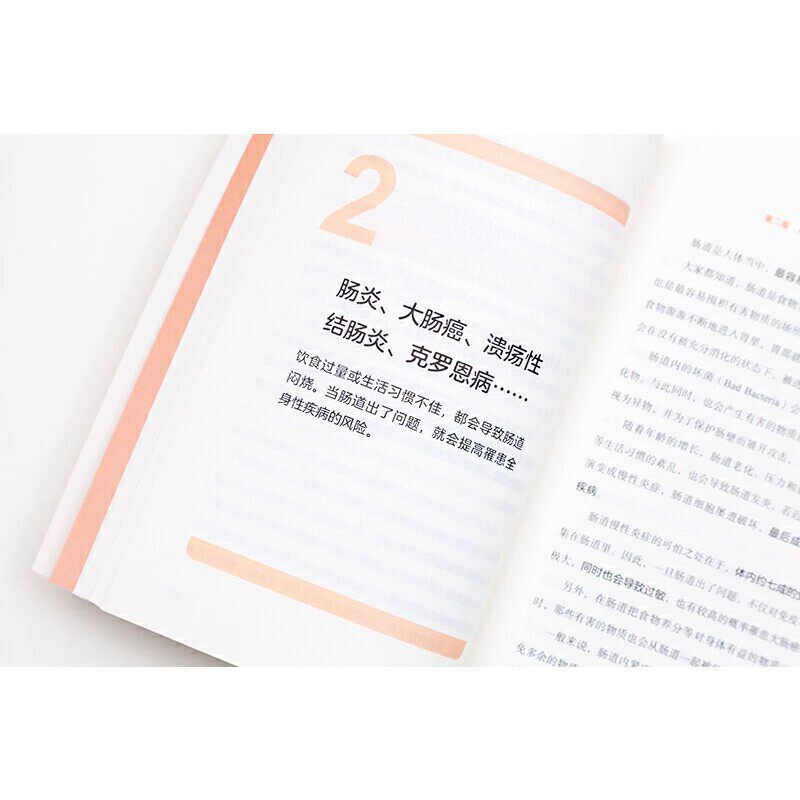 2
肠炎、大肠癌、溃疡性
结肠炎、克罗恩病……
饮食过量或生活习惯不佳，都会导致肠道
闷烧。当肠道出了问题，就会提高罹患全
身性疾病的风险。
第二章
肠道是人体当中，最容易
大家都知道，肠道是食物
也是最容易囤积有害物质的场所
食物源源不断地进入胃里，胃部
会在没有被充分消化的状态下，被迫
肠道内的坏菌（Bad Bacteria）会
化物。与此同时，也会产生有害的物质
视为异物，并为了保护肠壁而展开攻击。
随着年龄的增长，肠道老化、压力和
等生活习惯的紊乱，也会导致肠道发炎。若
演变成慢性炎症，肠道细胞屡遭破坏，最后成
疾病。
肠道慢性炎症的可怕之处在于，体内约七成的
集在肠道里。因此，一旦肠道出了问题，不仅对免疫
极大，同时也会导致过敏，也有较高的概率罹患大肠癌
另外，在肠道把食物养分等对身体有益的物质
时，那些有害的物质也会从肠道一起被
一般来说，肠道内
免多余的物质